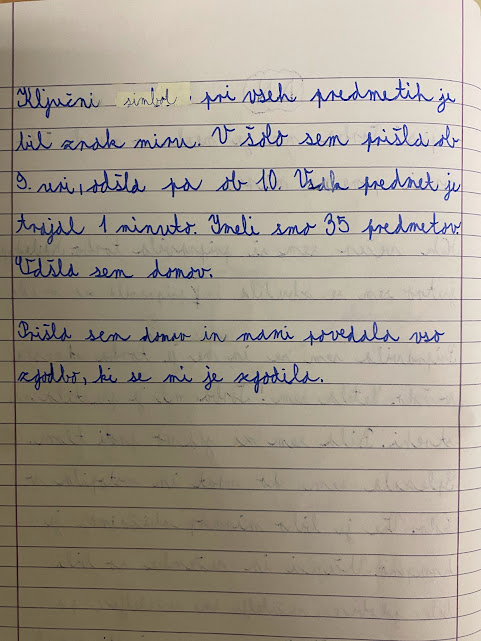 Ključni simbol pri vseh predmetih je
bil znak miru. V šolo sem prišla ob
9. uri, odšla pa ob 10. Vsak predmet je
trajal 1 minuto. Imeli smo 35 predmetov.
Odšla sem domov.
Prišla sem domov in mami povedala vso
zgodbo, ki se mi je zgodila.